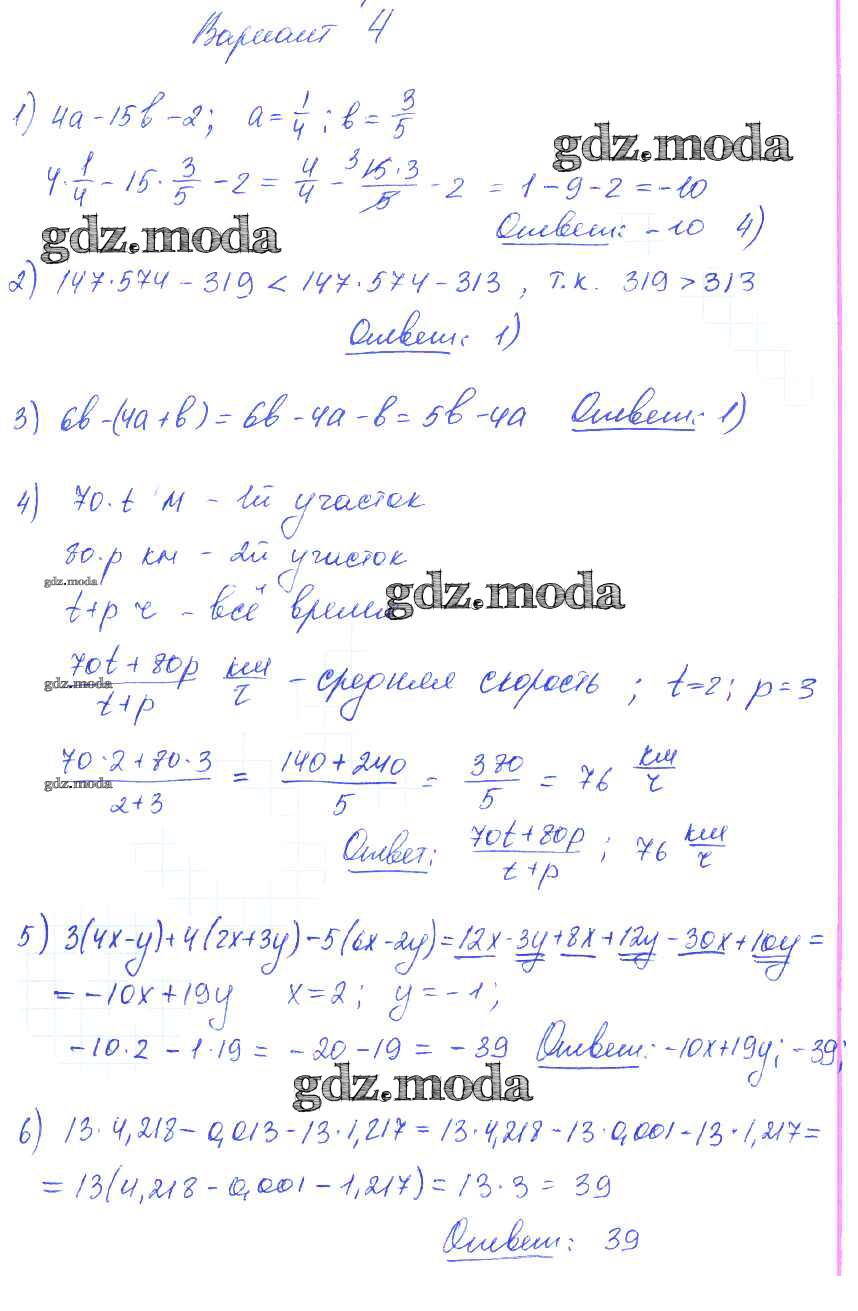 Вариант 4
1) 4a - 15b - 2; a = 1/4; b = 3/5
gdz.moda
4·1/4 - 15·3/5 - 2 = 4/4 - 3 15·3/5 - 2 = 1 - 9 - 2 = -10
Ответ: -10 4)
gdz.moda
2) 147·574 - 319 < 147·574 - 313, т.к. 319 > 313
Ответ: 1)
3) 6b - (4a + b) = 6b - 4a - b = 5b - 4a Ответ: 1)
4) 70·t м - 1й участок
80·p км - 2й участок
gdz.moda
gdz.moda
t + p ч - всё время
(70t + 80p)/(t + p) км/ч - средняя скорость; t = 2; p = 3
gdz.moda
(70·2 + 80·3)/(2 + 3) = (140 + 240)/5 = 380/5 = 76 км/ч
gdz.moda
Ответ: (70t + 80p)/(t + p); 76 км/ч
5) 3(4x - y) + 4(2x + 3y) - 5(6x - 2y) = 12x - 3y + 8x + 12y - 30x + 10y =
= -10x + 19y x = 2; y = -1;
-10·2 - 1·19 = -20 - 19 = -39 Ответ: -10x + 19y; -39;
gdz.moda
6) 13·4,218 - 0,013 - 13·1,217 = 13·4,218 - 13·0,001 - 13·1,217 =
= 13(4,218 - 0,001 - 1,217) = 13·3 = 39
Ответ: 39